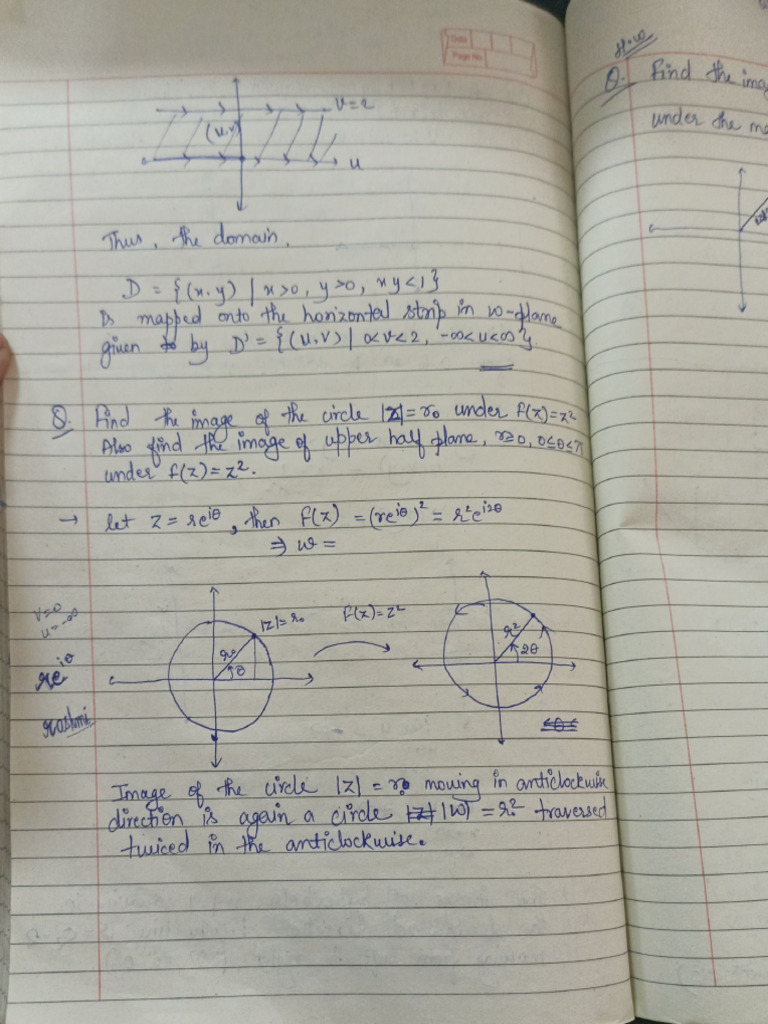 Date
Page No
v=2
(u,v)
u
Thus, the domain,
D = {(x,y) | x>0, y>0, xy<1}
is mapped onto the horizontal strip in w-plane
given to by D' = {(u,v) | 0<v<2, -∞<u<∞}.
Q. Find the image of the circle |z|=r₀ under f(z)=z²
Also find the image of upper half plane, r≥0, 0≤θ≤π
under f(z)=z².
→ let z = re^{iθ}, then f(z) = (re^{iθ})² = r²e^{i2θ}
⇒ w =
|z|=r₀
r₀
θ
f(z)=z²
r²
2θ
v=0
u=-∞
re^{iθ}
rashmi
Image of the circle |z| = r₀ moving in anticlockwise
direction is again a circle |z| |w| = r₀² traversed
twiced in the anticlockwise.
H.W
Q. Find the ima
under the ma